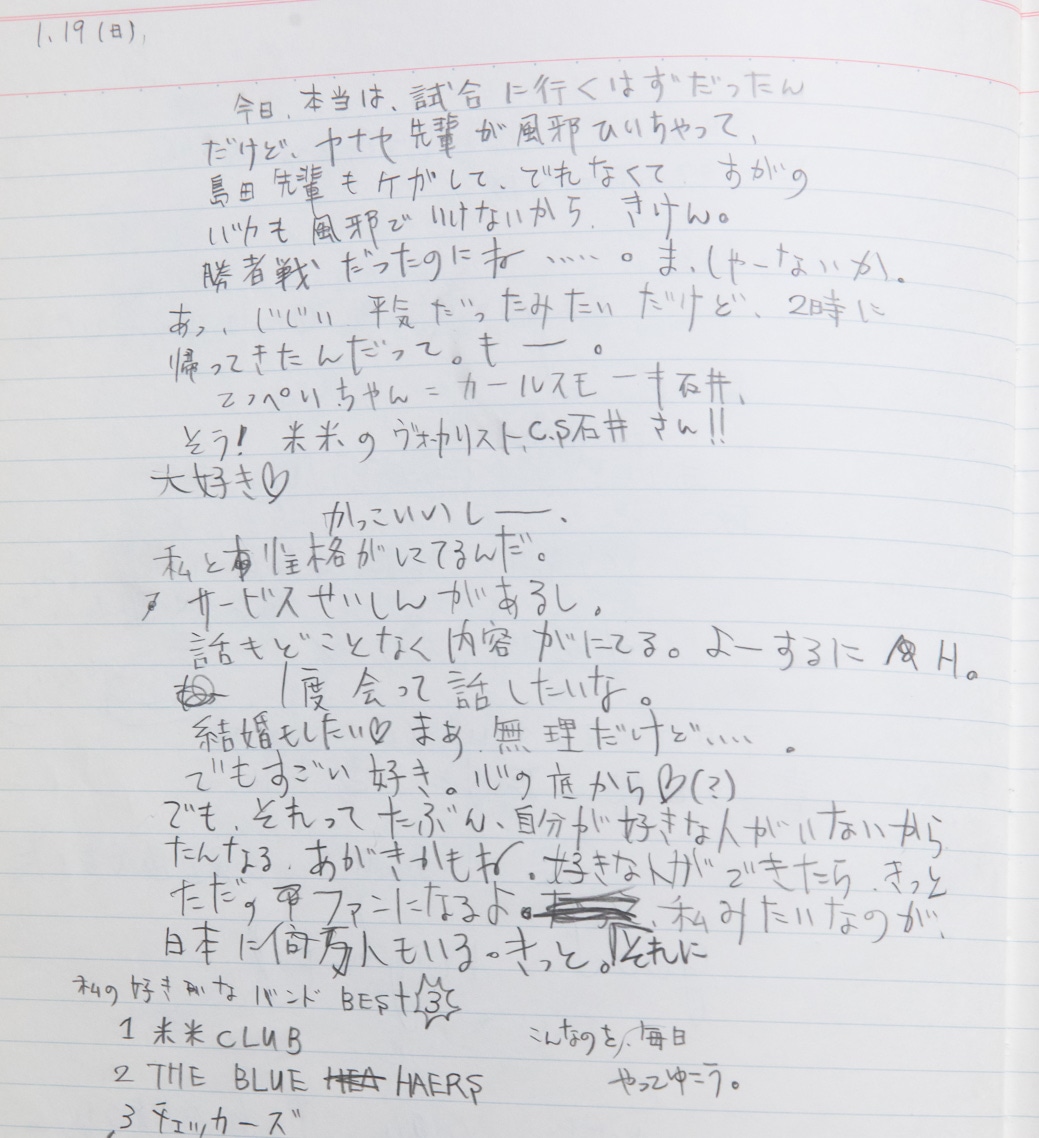 1.19(日).
今日、本当は、試合に行くはずだったん
だけど、ヤナセ先輩が風邪ひいちゃって、
島田先輩もケガして、でれなくて すがの
バカも風邪でいけないから、きけん。
勝者戦だったのにね……。ま、しゃーないか。
あっ、じじい平気だったみたいだけど、2時に
帰ってきたんだって。もー。
てっぺいちゃん=カールスモーキ石井、
そう!米米のヴォーカリスト、C.S石井さん!!
大好き♡
かっこいいしー、
私と性格がにてるんだ。
サービスせいしんがあるし、
話もどことなく内容がにてる。よーするにH。
1度会って話したいな。
結婚もしたい♡まぁ、無理だけど…。
でもすごい好き。心の底から♡(?)
でも、それってたぶん、自分が好きな人がいないから
たんなる、あがきかもね。好きな人ができたら、きっと
ただのファンになるよ。、私みたいなのが、
日本に何万人もいる。きっと。それに
私の好きな バンド BEST 3
1 米米CLUB
2 THE BLUE HAERS
3 チェッカーズ
こんなのを、毎日
やってゆこう。